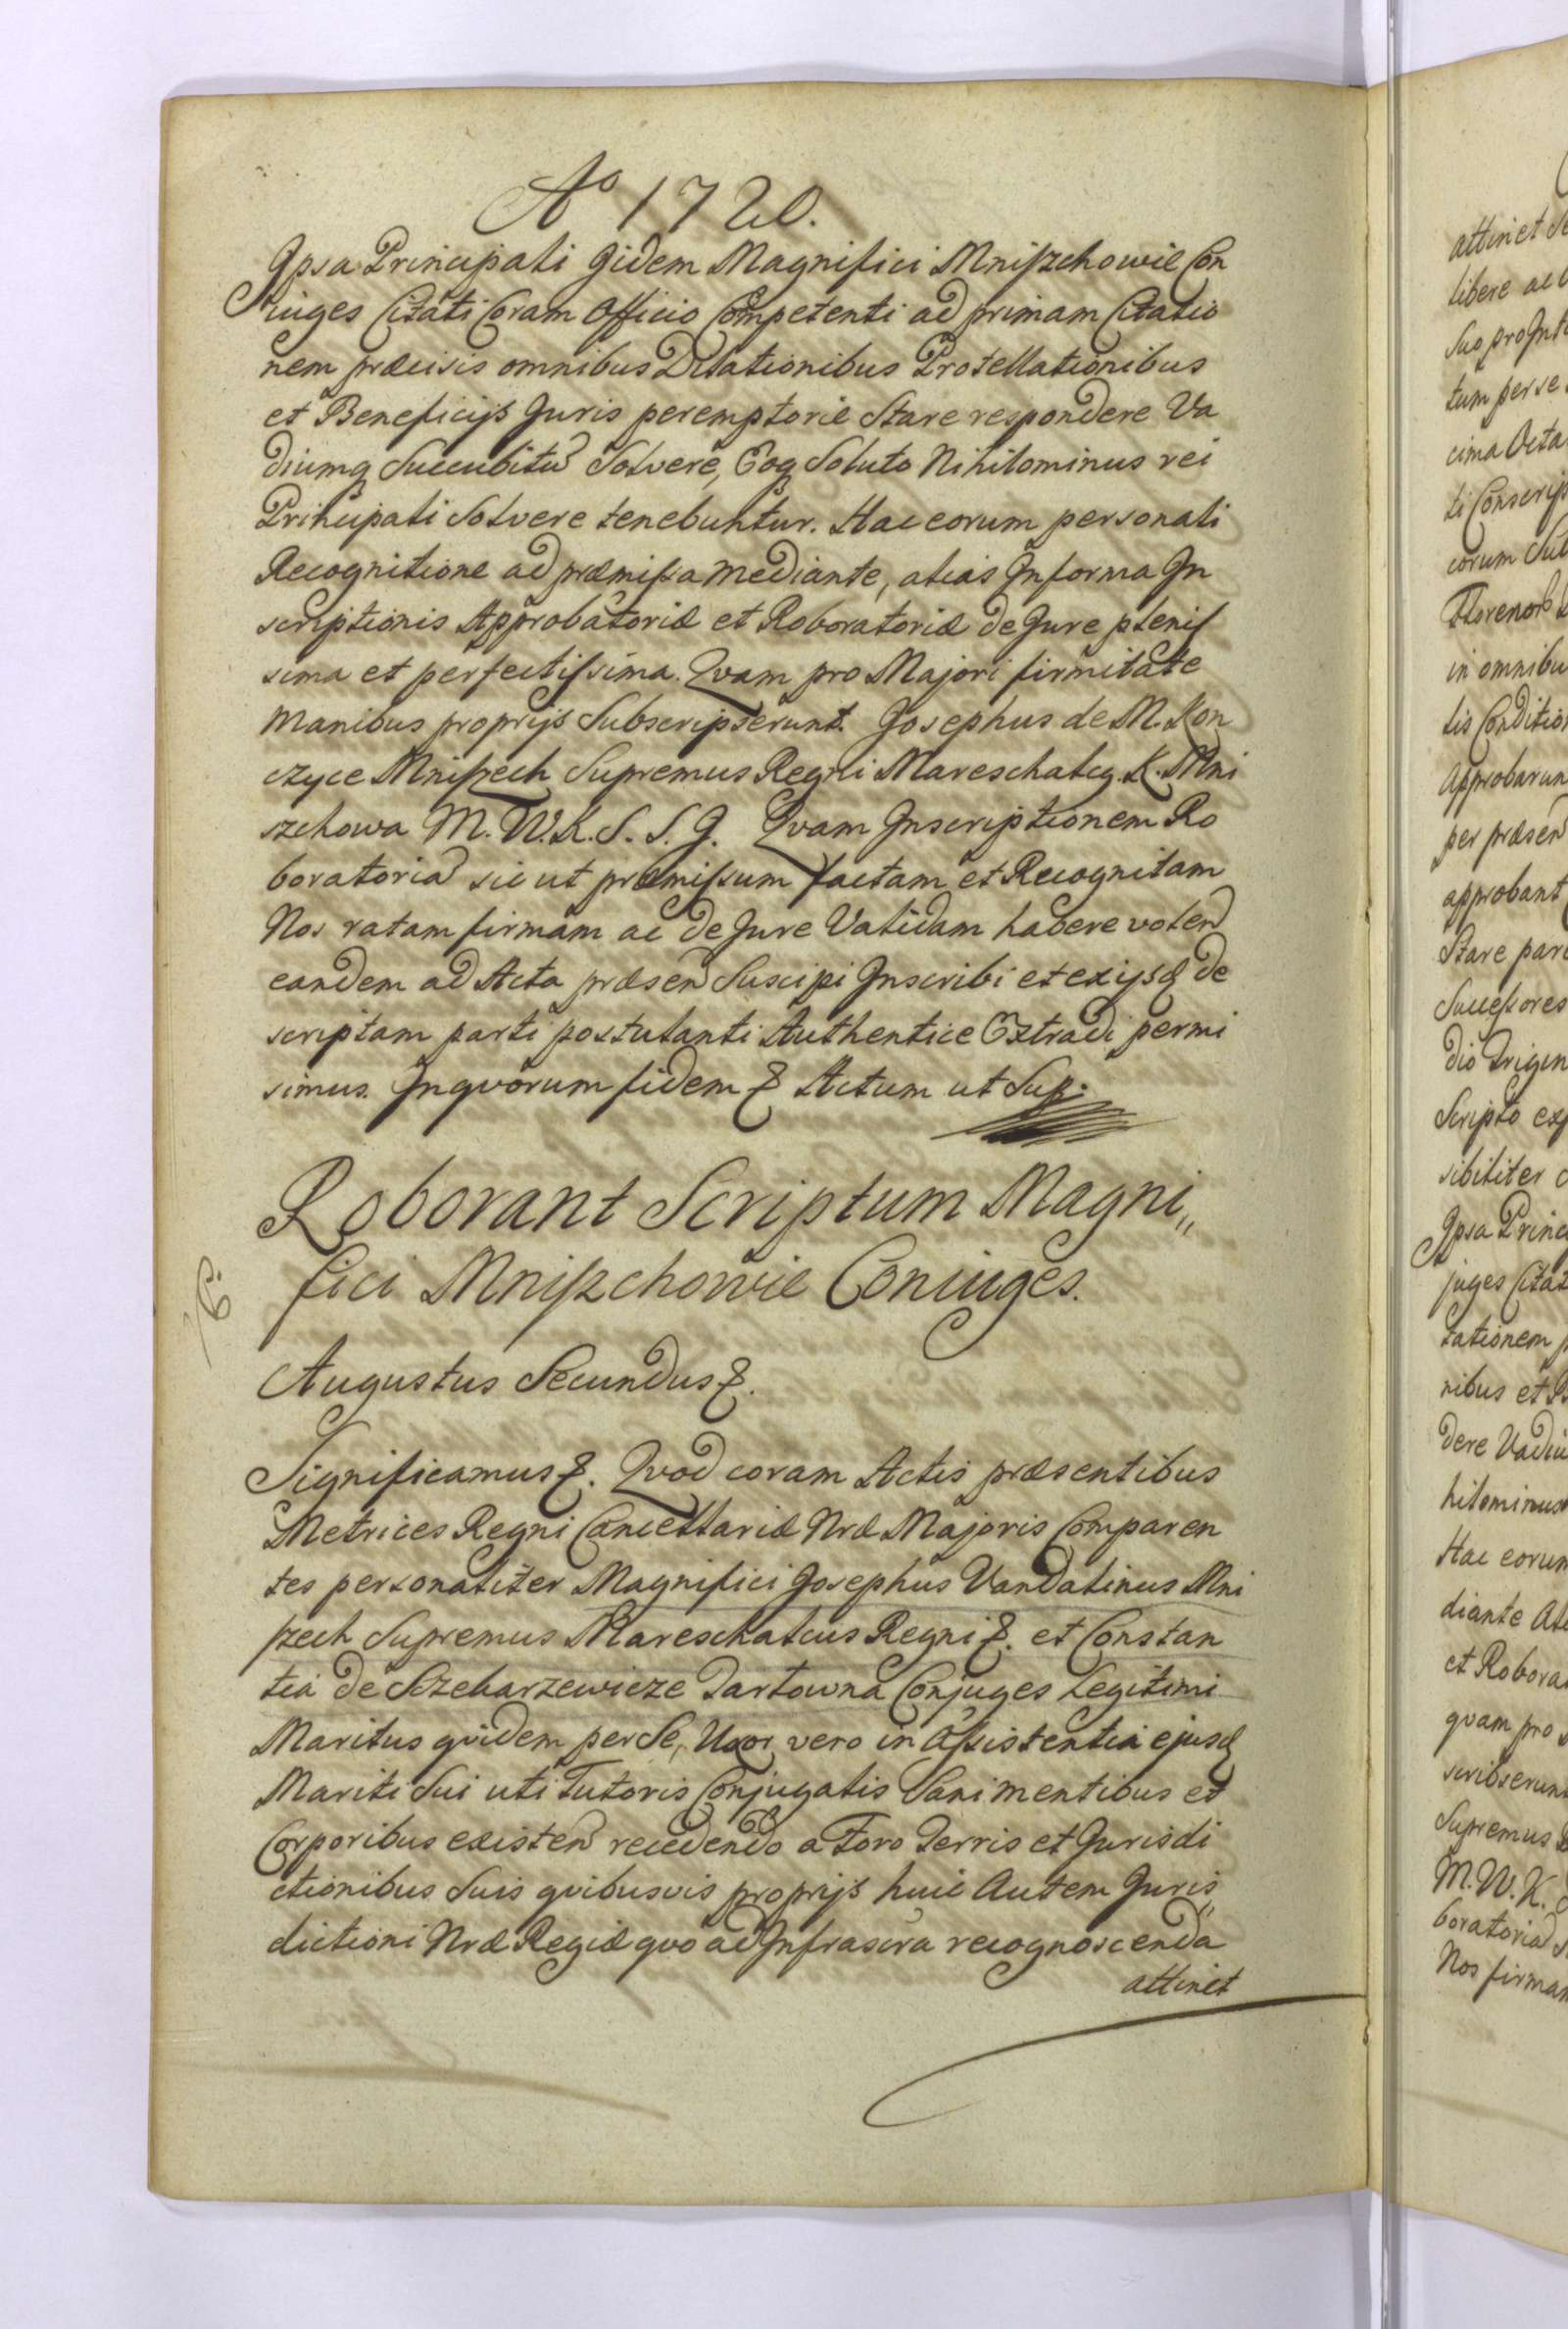 Aº 1720.
Ipsa Principali Iidem Magnifici Mniszchowie Con
iuges Citati Coram Officio Competenti ad primam Citatio
nem præcisis omnibus Dilationibus Protellationibus
et Beneficijs Juris peremptorie Stare respondere Va
diumq Succubitu Solvere, Eoq Soluto Nihilominus rei
Principali Solvere tenebuntur. Hac eorum personali
Recognitione ad præmissa mediante, alias In forma In
scriptionis Approbatoriæ et Roboratoriæ de Jure plenis
sima et perfectissima. Qvam pro Majori firmitate
Manibus proprijs Subscripserunt. Josephus de M. Kon
czyce Mniszech Supremus Regni Mareschalcg. K. Mni
szchowa M. W. K. S. S. J. Qvam Inscriptionem Ro
boratoria sic ut præmissum factam et Recognitam
Nos ratam firmam ac de Jure Validam habere volen
eandem ad Acta præsen Suscipi Inscribi et ex ijsd de
scriptam parti postulanti Authentice Extradi permi
simus. In qvorum fidem & Actum ut Sup:
Roborant Scriptum Magni„
fici Mniszchowie Coniuges.
Augustus Secundus &.
Significamus &. Qvod coram Actis præsentibus
Metrices Regni Cancellariæ Nræ Majoris Comparen
tes personaliter Magnifici Josephus Vandalinus Mni
szech Supremus Mareschalcus Regni &. et Constan
tia de Szczebarzewicze Tartowna Conjuges Legitimi
Maritus qvidem per Se, Uxor vero in Assistentia ejusd
Mariti Sui uti Tutoris Conjugalis Sani mentibus et
Corporibus existen recedendo a Foro Terris et Jurisdi
ctionibus Suis qvibusvis proprijs huic Autem Juris„
dictioni Nræ Regiæ qvo ad Infrascra recognoscenda
attinet
attinet
libere ac
Suo pro
tum per se
cima Octa
ti Conscrip
eorum Sub
Florenor
in omnibu
tis Conditio
Approbarun
per præsen
approbant
Stare pare
Successores
dio Trigin
Scripto
sibiliter
Ipsa Princ
juges Citat
tationem
nibus et
dere Vadiu
hilominus
Hac eorum
diante Al
et Robora
qvam pro
scribserunt
Supremus
M. W. K.
boratoria
Nos firmam